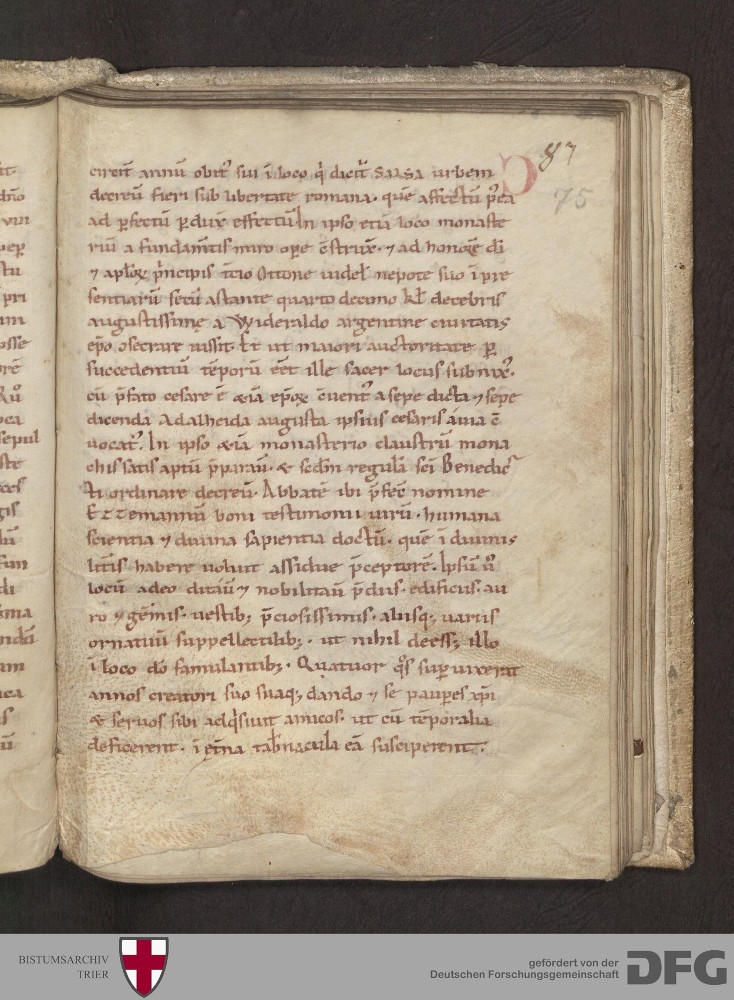 87
75
circit̄ annū obit᷒ sui ī loco q̇ dicit̄ Salsa urbem
decreū fieri sub libertate romana· quē affectū p̄ea
ad ꝑfectū ꝑdux̄ effectū In ipso etiā loco monaste
riū a fundam̄tis miro oꝑe c̄strux̄· ⁊ ad honorē dī
⁊ aplōꝝ p̄ncipis t̄cio Ottone uidel᷒ nepote suo ī pre
sentiarū secū astante quarto decimo kl̄ decēbris
augustissimę a Wideraldo argentine ciuitatis
ep̄o c̄secrare iussit· Et ut maiori auctoritate ꝑ
succedentiū tēporū eēt ille sacer locus subnix᷒·
cū p̄fato cesare ē &iā ep̄oꝝ c̄uent᷒ a sepe dicta ⁊ sepe
dicenda Adalheida augusta ipsius cesaris auia c̄
uocat᷒· In ipso &iā monasterio claustrū mona
chis satis aptū p̄parau̅· & scdm̄ regulā sc̄i Benedic
ti ordinare decreū· Abbatē ibi p̄fec̄ nomine
Eccemannū boni testimonii uirū· humana
scientia ⁊ diuina sapientia doctū· quē ī diuinis
litt̄is habere uoluit assidue p̄ceptorē· Ipsū u᷒
locū adeo ditau̅ ⁊ nobilitau̅ p̄diis· edificiis· au
ro ⁊ gēmis· uestib; p̄ciosissimis· aliisq; uariis
ornatuū suppellectilib;· ut nihil deess; illo
ī loco dō famulantib;· Quatuor q̊s suꝑuixerat
annos creatori suo suaq; dando ⁊ se pauꝑes xp̄i
& seruos sibi adq̇siuit amicos· ut cū tēporalia
deficerent· ī ęt̄na tab̄nacula eā susciperent·
BISTUMSARCHIV
TRIER
gefördert von der
Deutschen Forschungsgemeinschaft
DFG